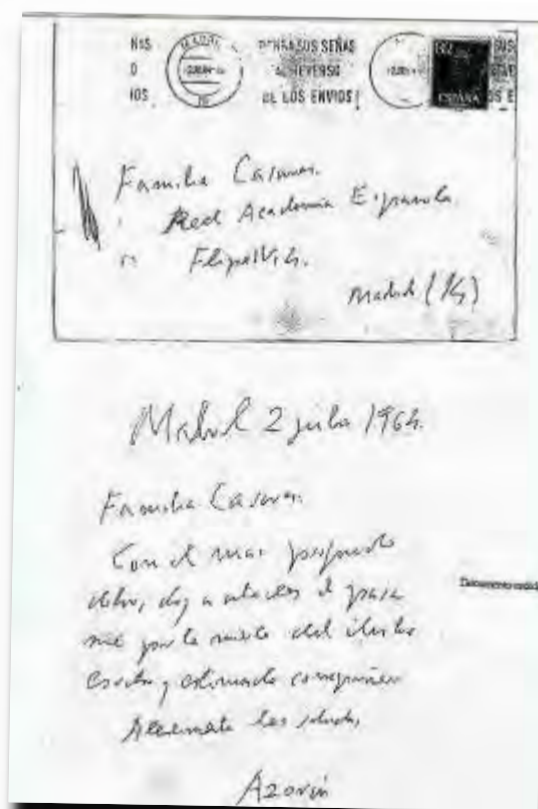 NAS MADRID PONGA SUS SEÑAS SUS
O AL REVERSO
IOS DE LOS ENVIOS ESPAÑA OS E
Familia Casares.
Real Academia Española.
Felipe IV, 4.
Madrid (14)
Madrid 2 julio 1964.
Familia Casares.
Con el mas profundo
dolor, doy a ustedes el pésa
me por la muerte del ilustre
escritor y estimado compañero
Atentamente les saluda,
Azorín